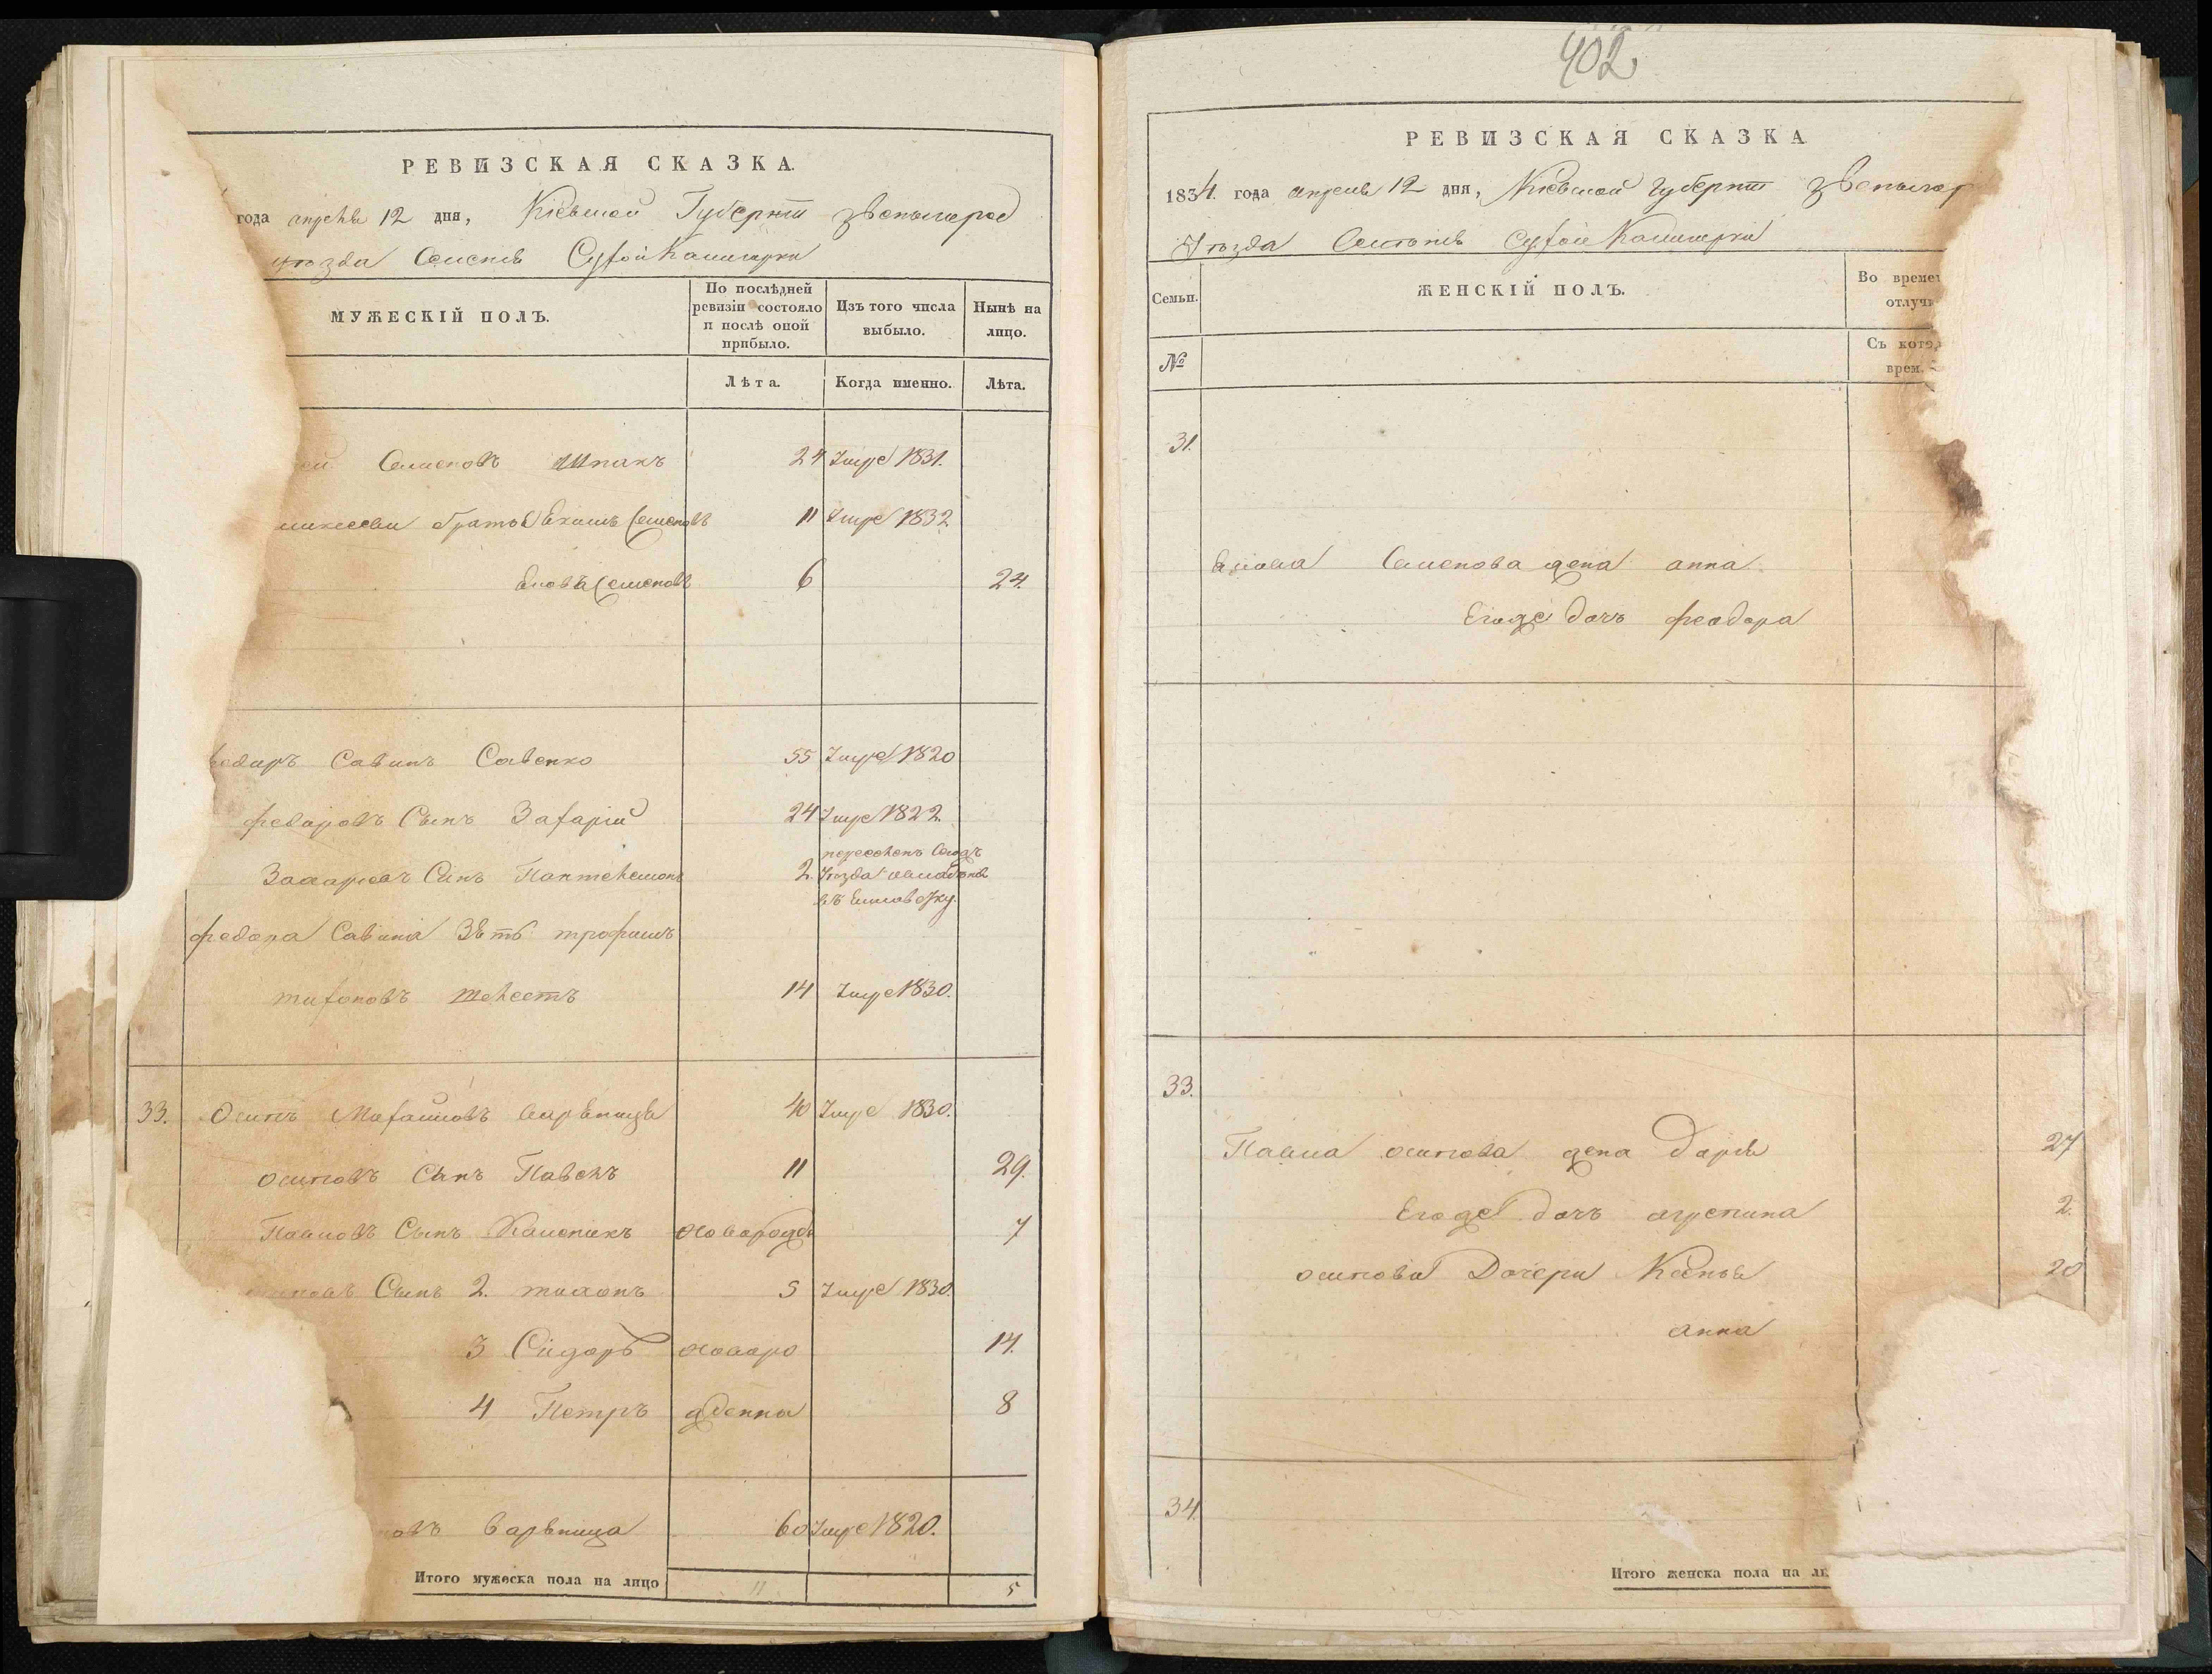 РЕВИЗСКАЯ СКАЗКА.
года апреля 12 дня, Кіевской Губерніи Звенигород
уѣзда Селенія Сухой Калигорки
МУЖЕСКІЙ ПОЛЪ.
По послѣдней ревизіи состояло и послѣ оной прибыло.
Изъ того числа выбыло.
Нынѣ на лицо.
Лѣта.
Когда именно.
Лѣта.
Семеновъ Шпакъ 24 Умре 1831.
братья Екимъ Семеновъ 11 Умре 1832
Семеновъ 6 24.
Савинъ Савенко 55 Умре 1820
Федоровъ Сынъ Захарій 24 Умре 1822.
Захаріевъ Синъ Пантелемонъ 2 переселенъ
Уѣзда
въ
Федора Савина Зять трофимъ
тихоновъ шелестъ 14 Умре 1830.
33. Осипъ 40 Умре 1830.
осиповъ Сынъ Павелъ 11 29.
Павловъ Сынъ новорожд 7
Сынъ 2. тихонъ 5 Умре 1830.
3 Сидоръ новоро 14.
4 Петръ жденны 8
новъ Варвница 60 Умре 1820.
Итого мужеска пола на лицо 11 5
402
РЕВИЗСКАЯ СКАЗКА
1834. года апреля 12 дня, Кіевской Губерніи Звенигор
Уѣзда Селенія Сухой Калигорки
Семьи.
ЖЕНСКІЙ ПОЛЪ.
Во времен
отлуч
№
Съ кото
врем.
31.
Семенова жена анна
Егоже дочь феодора
33.
Павла осипова жена Дарья 27
Егоже дочь агрепина 2.
осипова Дочери Ксенья 20
анна
34.
Итого женска пола на ли